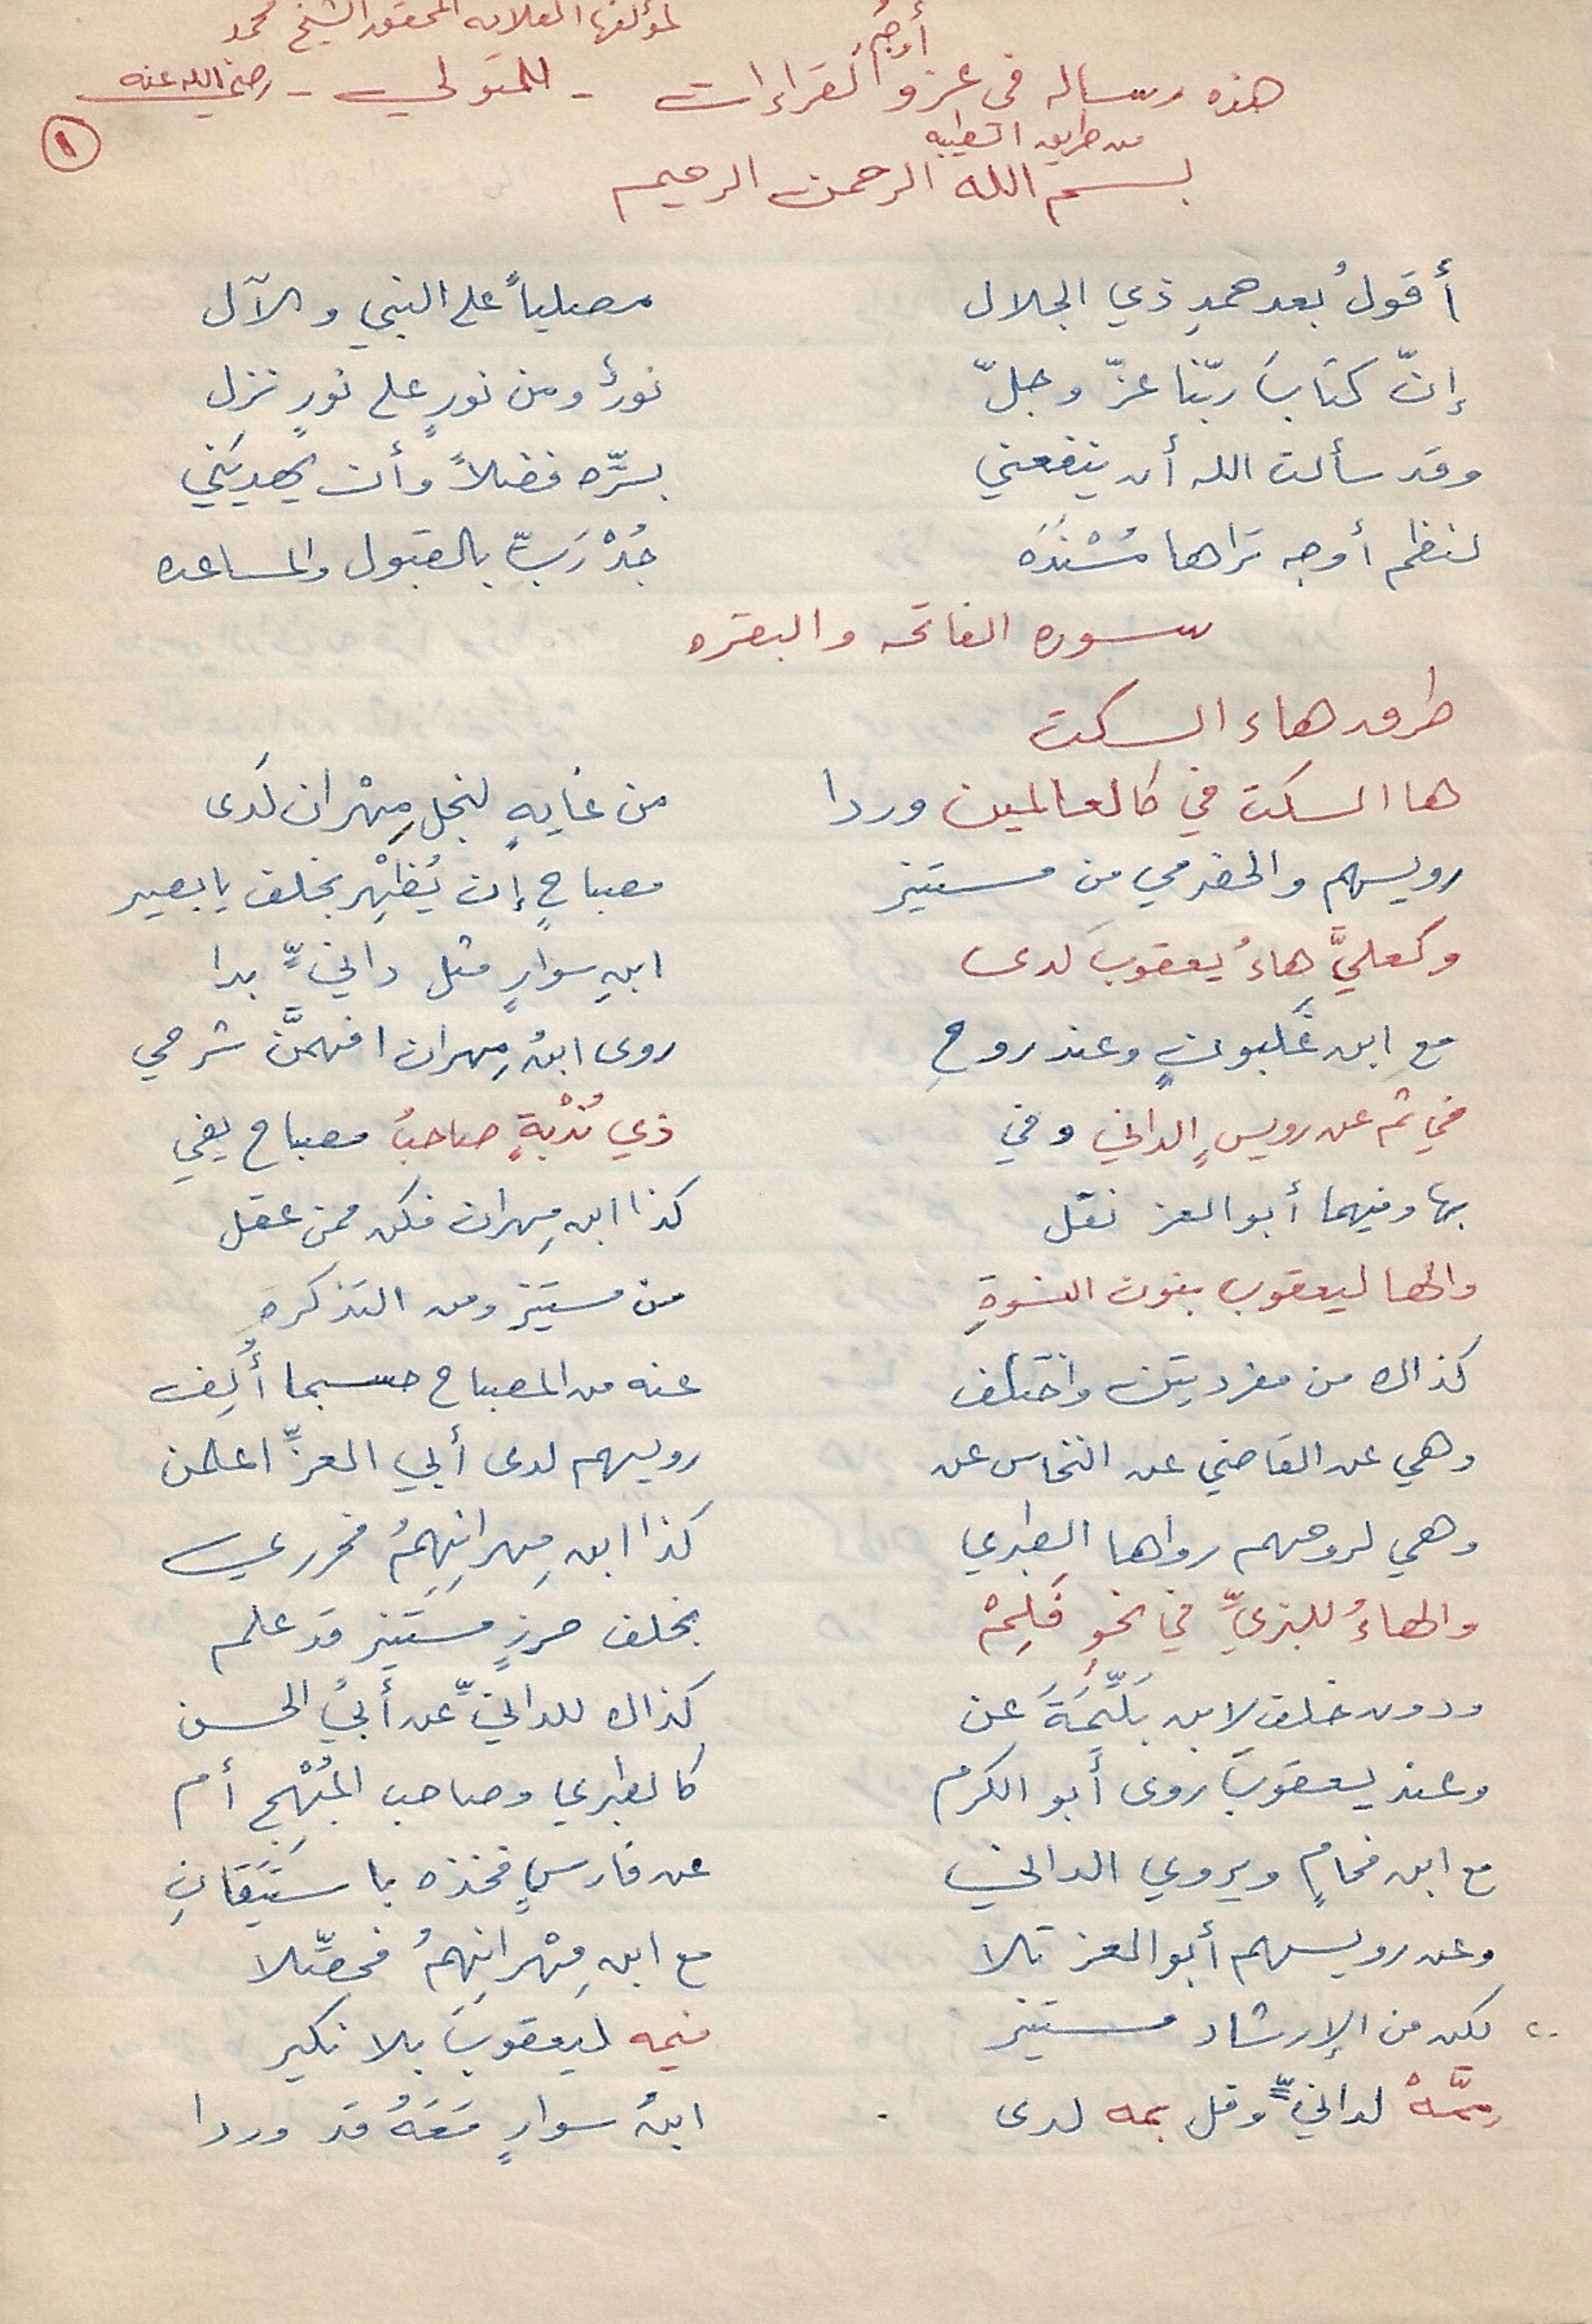 لمؤلفها العلامه المحقق الشيخ محمد
هذه رساله في عزو أوجه القراءات - للمتولي - رضي الله عنه
من طريق الطيبه
١
بسم الله الرحمن الرحيم
أقولُ بعد حمدِ ذي الجلال مصلياً على النبي والآل
إنّ كتابَ ربّنا عزّ وجلّ نورٌ ومن نورٍ على نورٍ نزل
وقد سألت الله أن ينفعني بسّره فضلاً وأن يهديَني
لنظم أوجه تراها مُسْنَدَه جُدْ رَبِّ بالقبول والمساعده
سوره الفاتحه والبقره
طرق هاء السكت
ها السكت في كالعالمين وردا من غايةٍ لنجل مِهْران لَدى
رويسهم والحضرمي من مستنير مصباحٍ إن يُظهِر بخلف يا بصير
وكعليَّ هاءُ يعقوبَ لدى ابنِ سوارٍ مثل دانيٍّ بدا
مع ابن غَلبونٍ وعند روحِ روى ابنُ مِهران افهمَّن شرحي
في ثم عن رويسٍ الداني وفي ذي نُدْبةٍ صاحبُ مصباح يفي
بها وفيهما أبو العز نقل كذا ابن مِهران فكن ممن عقل
والها ليعقوب بنون النسوةِ من مستنيز ومن التذكرهِ
كذاك من مفردتين واختلف عنه من المصباح حسبما أُلِف
وهي عن القاضي عن النخاس عن رويسهم لدى أبي العزِّ اعلمن
وهي لروحهم رواها الطبري كذا ابن مِهرانِهِمُ فحرري
والهاءُ للبزيِّ في نحوِ فَلِمْ بخلف حرزٍ مستنيرٍ قد علم
ودون خلف لابن بَلِّيمَةَ عن كذاك للدانيِّ عن أبي الحسن
وعند يعقوبَ روى أبو الكرم كالطبري وصاحب المُبْهِج أم
مع ابن فحامٍ ويروي الداني عن فارسٍ فخذه باستيقانِ
وعن رويسهم أبو العز تلا مع ابن مِهْرانِهِمُ فحصِّلا
٢٠ لكن من الإرشاد مستنير فيمه ليعقوبَ بلا نكير
مِمَّهْ لدانيٍّ وقل بمه لدى ابنُ سوارٍ مَعَهُ قد وردا